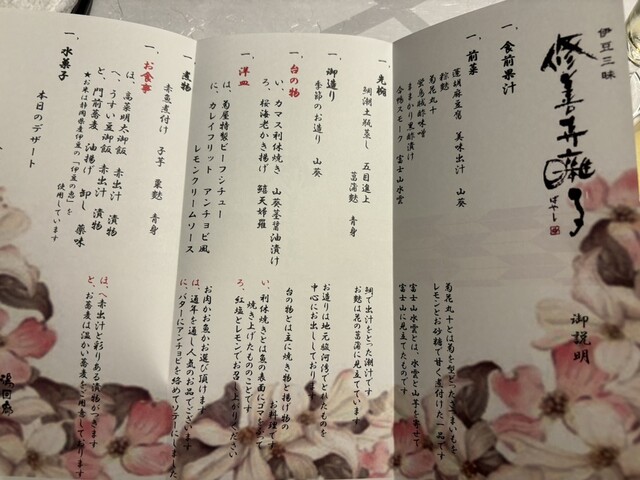 伊豆三昧
修善寺囃子
ばやし
御説明
一、食前果汁
一、前菜
蓮胡麻豆腐 美味出汁 山葵
粽麩
菊花丸十
紫烏賊酢味噌
ままかり黒酢漬け
合鴨スモーク 富士山水雲
菊花丸十とは菊を型どったさつまいもを
レモンとお砂糖で甘く煮付けた一品です
富士山水雲とは、水雲と山芋を寄せて
富士山に見立てたものです
一、先椀
鯛潮土瓶蒸し 五目進上
菖蒲麩 青身
鯛で出汁をとった潮汁です
お麩は花の菖蒲に見立てています
一、御造り
季節のお造り 山葵
お造りは地元駿河湾でとれたものを
中心にお出ししております
一、台の物
い、カマス利休焼き 山葵茎醤油漬け
ろ、桜海老かき揚げ 鮎天婦羅
台の物とは主に焼き物と揚げ物の
お料理です
い、利休焼きとは魚の表面にゴマをまぶして
焼き上げたもののことです
ろ、紅塩とレモンでお召し上がりください
一、洋皿
は、菊屋特製ビーフシチュー
に、カレイフリット アンチョビ風
レモンクリームソース
お肉かお魚かお選び頂けます
は、通年を通し人気のお品でございます
に、バターにアンチョビを絡めてソテーにしました
一、煮物
赤魚煮付け 子芋 粟麩 青身
一、お食事
ほ、高菜明太御飯 赤出汁 漬物
へ、うすい豆御飯 赤出汁 漬物
と、門前蕎麦 油揚げ 卸し 薬味
★お米は静岡県産伊豆の「伊豆の恵」を
使用しています
ほ、へ赤出汁と彩りある漬物がつきます
と、お蕎麦は温かい蕎麦をご用意しております
一、水菓子
本日のデザート
湯回廊